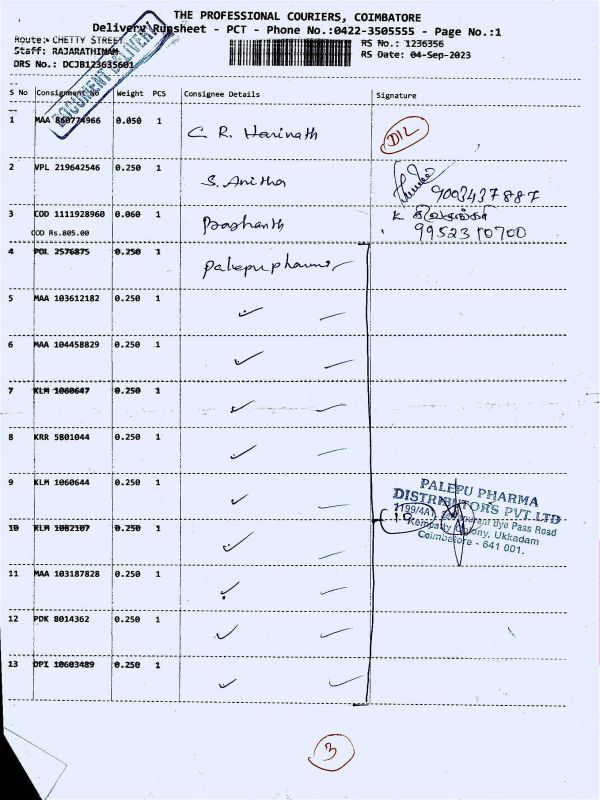 THE PROFESSIONAL COURIERS, COIMBATORE
Delivery Runsheet - PCT - Phone No.:0422-3505555 - Page No.:1
Route: CHETTY STREET
RS No.: 1236356
Staff: RAJARATHINAM
RS Date: 04-Sep-2023
DRS No.: DCJB123635601
DOCUMENT DELIVERY
S No Consignment No Weight PCS Consignee Details Signature
1 MAA 860774966 0.050 1 C R. Harinath DIL
2 VPL 219642546 0.250 1 S. Anitha 9003437887
3 COD 1111928960 0.060 1 Prashanth K
COD Rs.805.00 9952310700
4 POL 2576875 0.250 1 Palepu pharma
5 MAA 103612182 0.250 1
6 MAA 104458829 0.250 1
7 KLM 1060647 0.250 1
8 KRR 5801044 0.250 1
9 KLM 1060644 0.250 1
PALEPU PHARMA
DISTRIBUTORS PVT LTD
1199/4A1, Bye Pass Road
Kempatty Colony, Ukkadam
Coimbatore - 641 001.
10 KLM 1082107 0.250 1
10
11 MAA 103187828 0.250 1
12 PDK 8014362 0.250 1
13 DPI 10603489 0.250 1
3